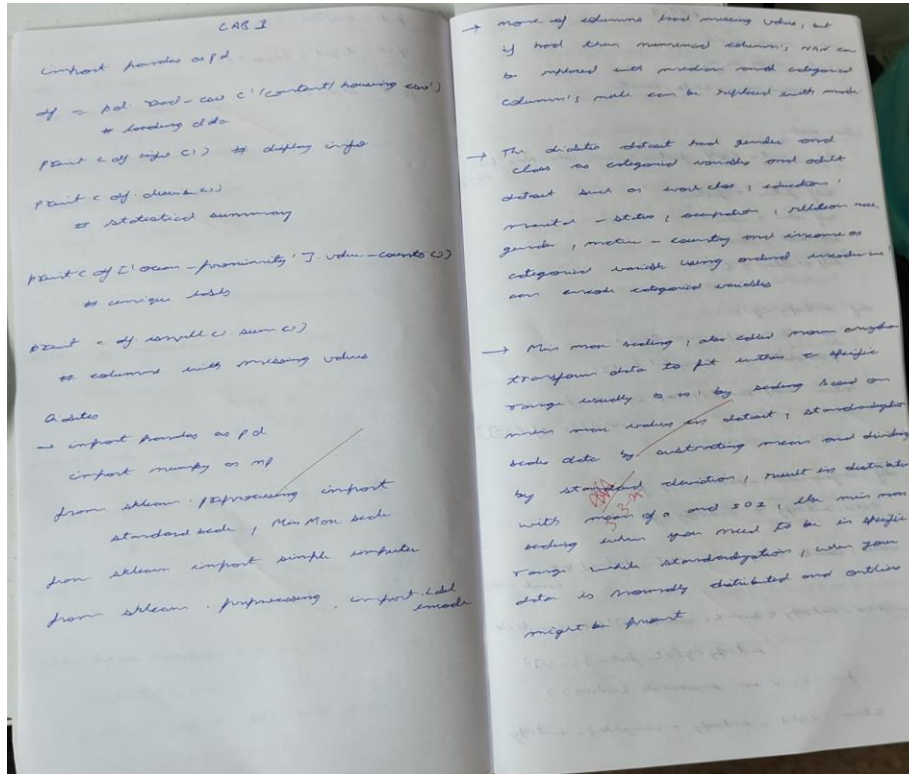 LAB I
import pandas as pd
df = pd. read-csv ('/content/ housing csv')
# loading data
print ( df info ()) # display info
print ( df. describe ())
# statistical summary
print ( df ['ocean - proximity' ]. value - counts ())
# unique
print = df. isnull () sum ()
# columns with missing values
→ import pandas as pd
import numpy as np
from sklearn . preprocessing import
standard scale , Min Max scale
from sklearn import simple imputer
from sklearn . preprocessing . import . Label
encode
→ none of columns had missing value, but
if had then numerical column's NAN can
be replaced with median and categorical
column's null can be replaced with mode
→ The diabetes dataset had gender and
class as categorical variables and adult
dataset such as work class , education ,
marital - status , occupation , relation
gender , native - country and income as
categorical variable using ordinal encoder we
can encode categorical variables
→ Min max scaling , also called
transform data to fit within a specific
range usually 0 to 1, by scaling based on
min max values in dataset , standardization
scales data by subtracting mean and dividing
by standard deviation , result in distribution
with mean of 0 and
scaling when you need to be in specific
range while standardization , when your
data is normally distributed and outliers
might be present